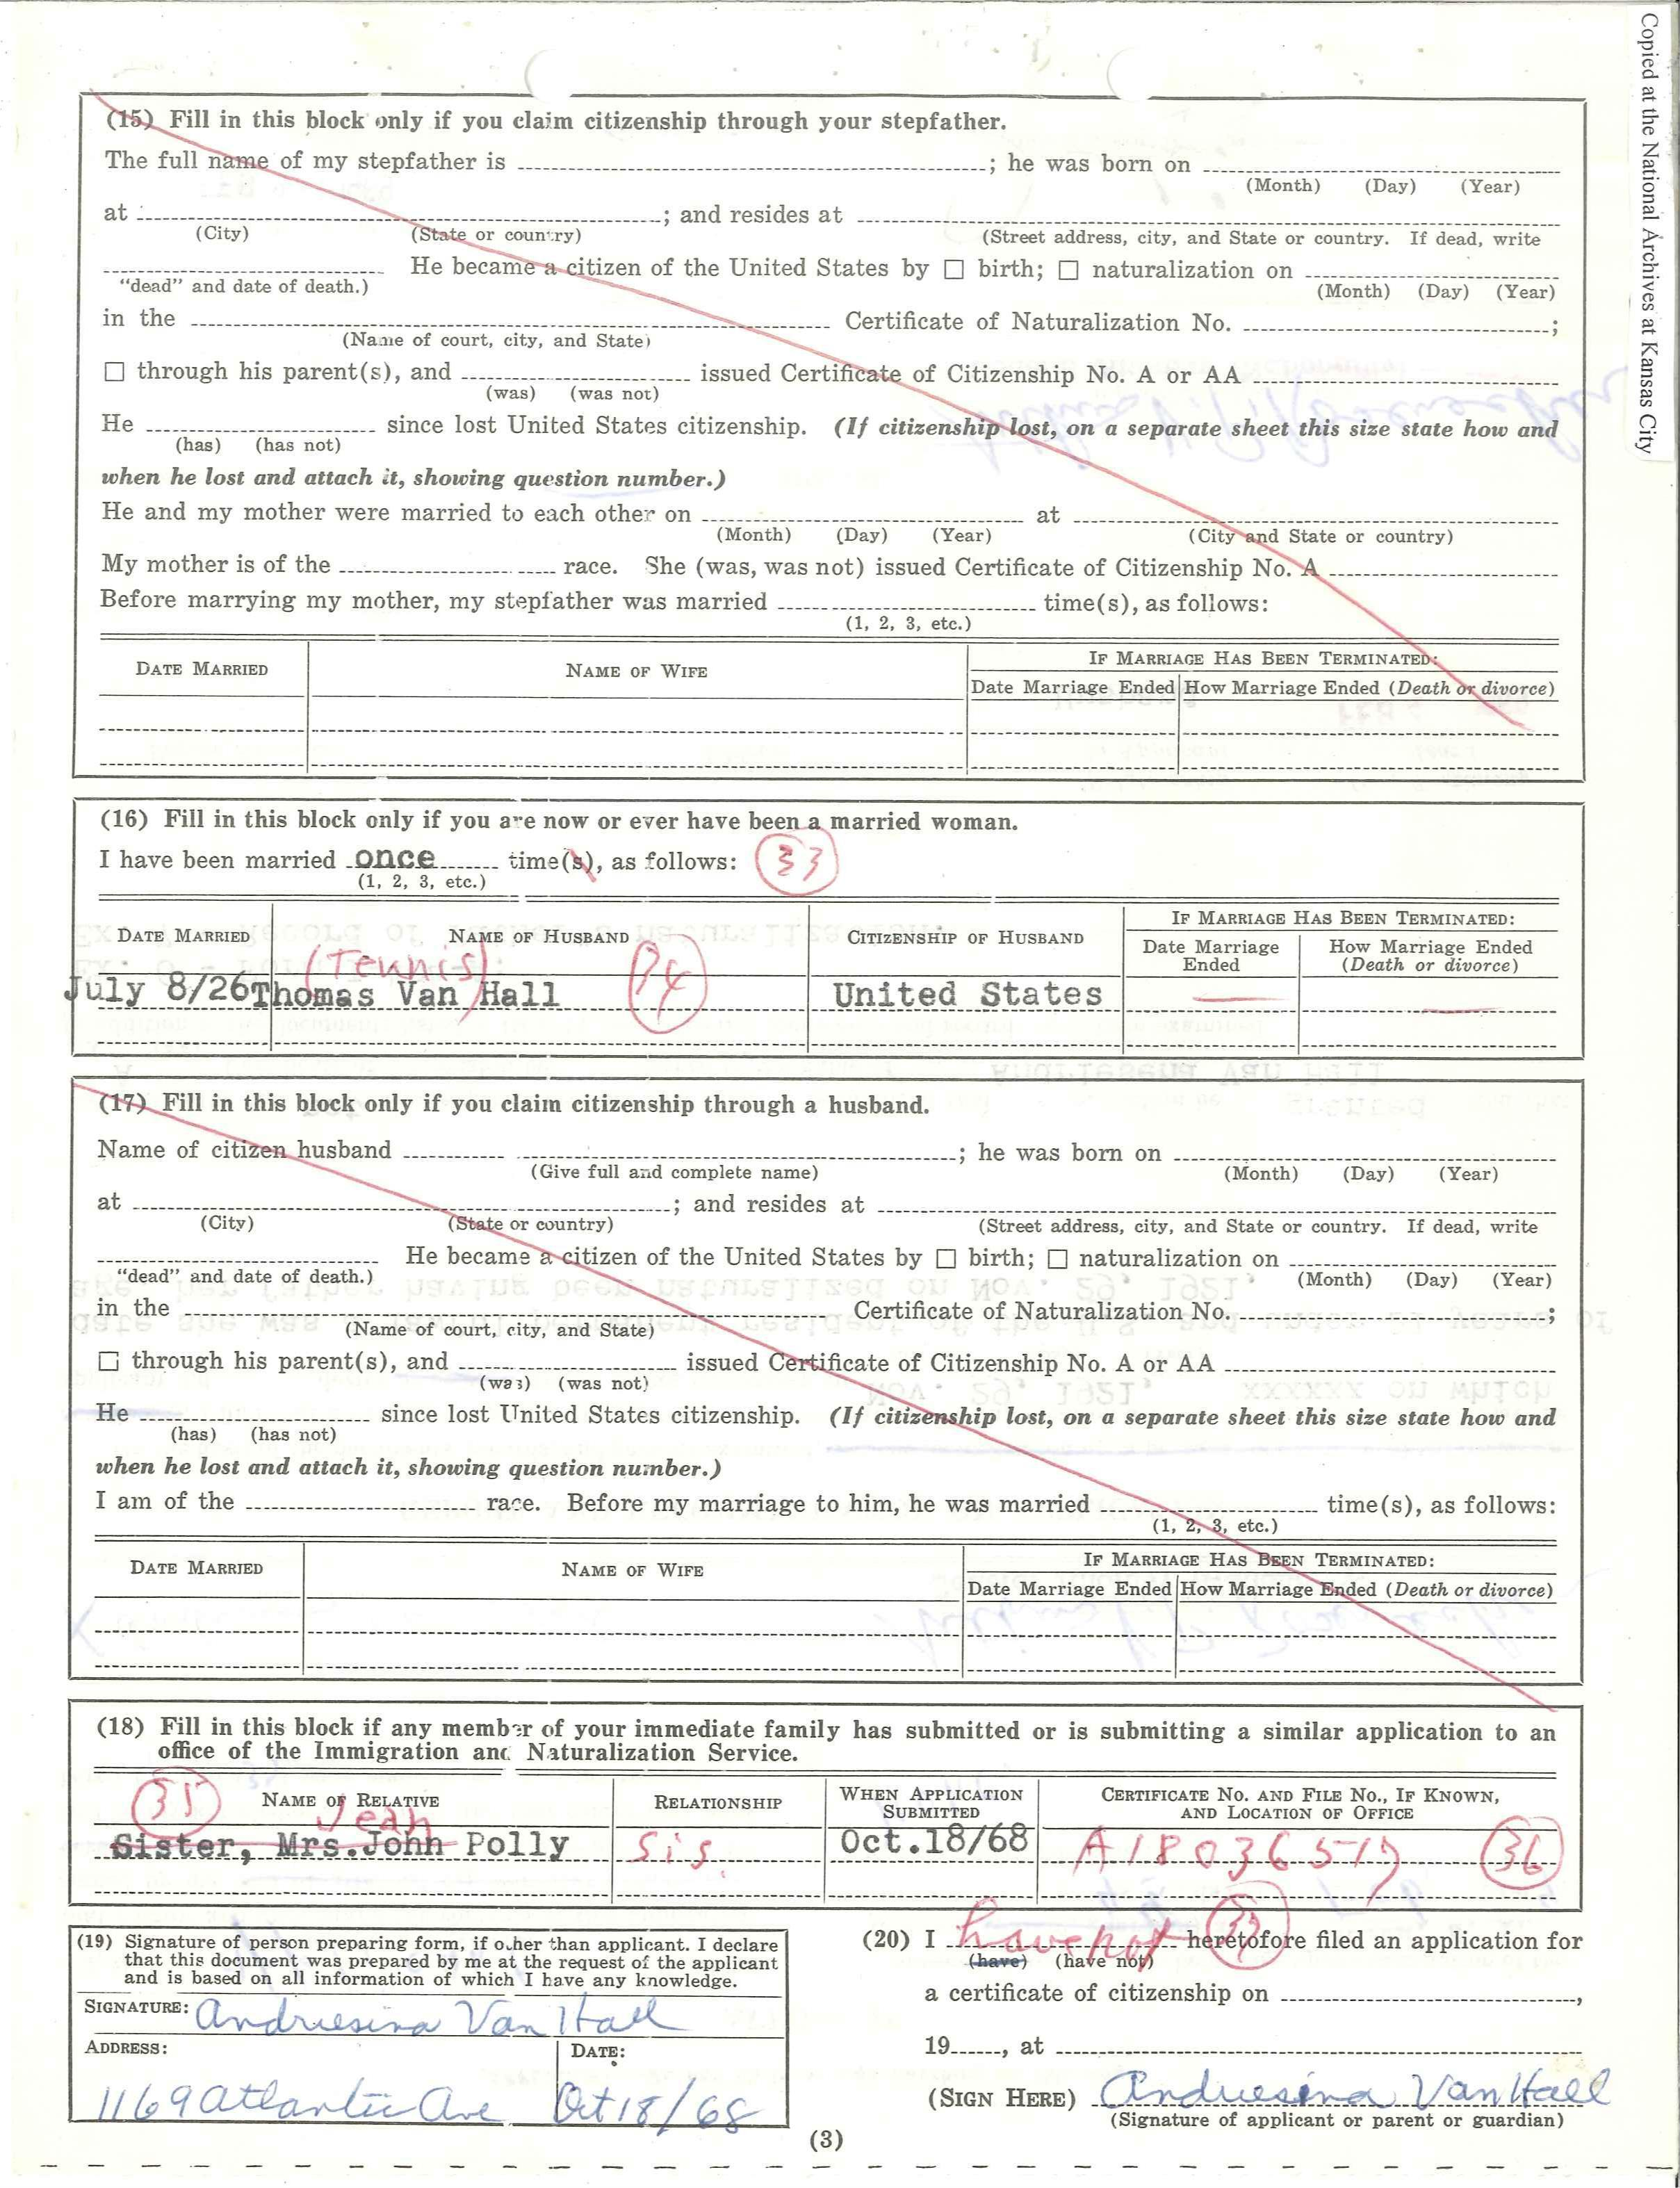 Copied at the National Archives at Kansas City
(15) Fill in this block only if you claim citizenship through your stepfather.
The full name of my stepfather is ; he was born on
(Month) (Day) (Year)
at ; and resides at
(City) (State or country) (Street address, city, and State or country. If dead, write
He became a citizen of the United States by ☐ birth; ☐ naturalization on
"dead" and date of death.) (Month) (Day) (Year)
in the Certificate of Naturalization No. ;
(Name of court, city, and State)
☐ through his parent(s), and issued Certificate of Citizenship No. A or AA
(was) (was not)
He since lost United States citizenship. (If citizenship lost, on a separate sheet this size state how and
(has) (has not)
when he lost and attach it, showing question number.)
He and my mother were married to each other on at
(Month) (Day) (Year) (City and State or country)
My mother is of the race. She (was, was not) issued Certificate of Citizenship No. A
Before marrying my mother, my stepfather was married time(s), as follows:
(1, 2, 3, etc.)
DATE MARRIED NAME OF WIFE IF MARRIAGE HAS BEEN TERMINATED:
Date Marriage Ended How Marriage Ended (Death or divorce)
(16) Fill in this block only if you are now or ever have been a married woman.
I have been married once time(s), as follows: 33
(1, 2, 3, etc.)
DATE MARRIED NAME OF HUSBAND CITIZENSHIP OF HUSBAND IF MARRIAGE HAS BEEN TERMINATED:
Date Marriage Ended How Marriage Ended (Death or divorce)
(Teunis) 34
July 8/26 Thomas Van Hall United States
(17) Fill in this block only if you claim citizenship through a husband.
Name of citizen husband ; he was born on
(Give full and complete name) (Month) (Day) (Year)
at ; and resides at
(City) (State or country) (Street address, city, and State or country. If dead, write
He became a citizen of the United States by ☐ birth; ☐ naturalization on
"dead" and date of death.) (Month) (Day) (Year)
in the Certificate of Naturalization No. ;
(Name of court, city, and State)
☐ through his parent(s), and issued Certificate of Citizenship No. A or AA
(was) (was not)
He since lost United States citizenship. (If citizenship lost, on a separate sheet this size state how and
(has) (has not)
when he lost and attach it, showing question number.)
I am of the race. Before my marriage to him, he was married time(s), as follows:
(1, 2, 3, etc.)
DATE MARRIED NAME OF WIFE IF MARRIAGE HAS BEEN TERMINATED:
Date Marriage Ended How Marriage Ended (Death or divorce)
(18) Fill in this block if any member of your immediate family has submitted or is submitting a similar application to an
office of the Immigration and Naturalization Service.
35 NAME OF RELATIVE RELATIONSHIP WHEN APPLICATION SUBMITTED CERTIFICATE NO. AND FILE NO., IF KNOWN, AND LOCATION OF OFFICE
Jean
Sister, Mrs.John Polly Sis. Oct.18/68 A18036517 36
(19) Signature of person preparing form, if other than applicant. I declare
that this document was prepared by me at the request of the applicant
and is based on all information of which I have any knowledge.
SIGNATURE: Andriesina Van Hall
ADDRESS: DATE:
1169 Atlantic Ave Oct 18/68
(20) I have not 37 heretofore filed an application for
(have) (have not)
a certificate of citizenship on ,
19 , at
(SIGN HERE) Andriesina Van Hall
(Signature of applicant or parent or guardian)
(3)